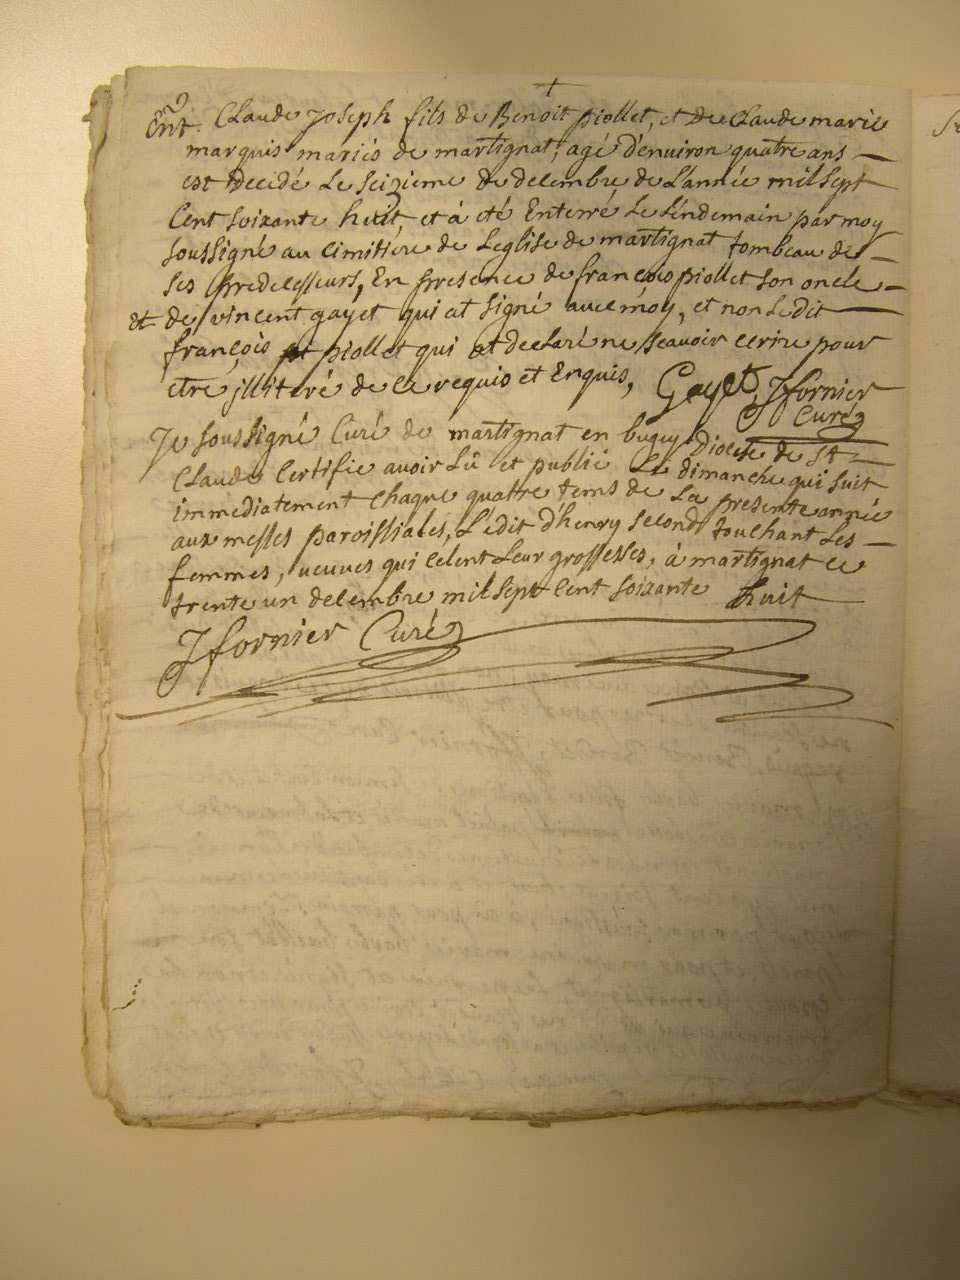 +
Ent. Claude Joseph fils de Benoit piollet, et de Claude marie
marquis mariés de martignat, agé d'enuiron quatre ans —
est decidé Le seizieme de decembre de L'année mil sept
Cent soixante huit, et á eté Enterré Le Lendemain par moy
soussigné au cimitiére de Leglise de martignat tombeau de —
ses predecesseurs, En presence de françois piollet son oncle —
et de vincent gayet qui at signé avec moy, et non Ledit —
françois piollet qui at declaré ne scauoir ecrire pour
etre illiteré de ce requis et Enquis, Gayet Jfornier
Curé
Je soussigné Curé de martignat en bugey Diocese de St —
Claude Certifie auoir Lû et publié Le dimanche qui suit
immediatement Chaque quattre tems de La presente année
aux messes paroissiales, L'édit d'henry second touchant Les —
femmes, ueuues qui celent Leur grossesses, à martignat ce
trente un decembre mil sept Cent soixante huit —
Jfornier Curé